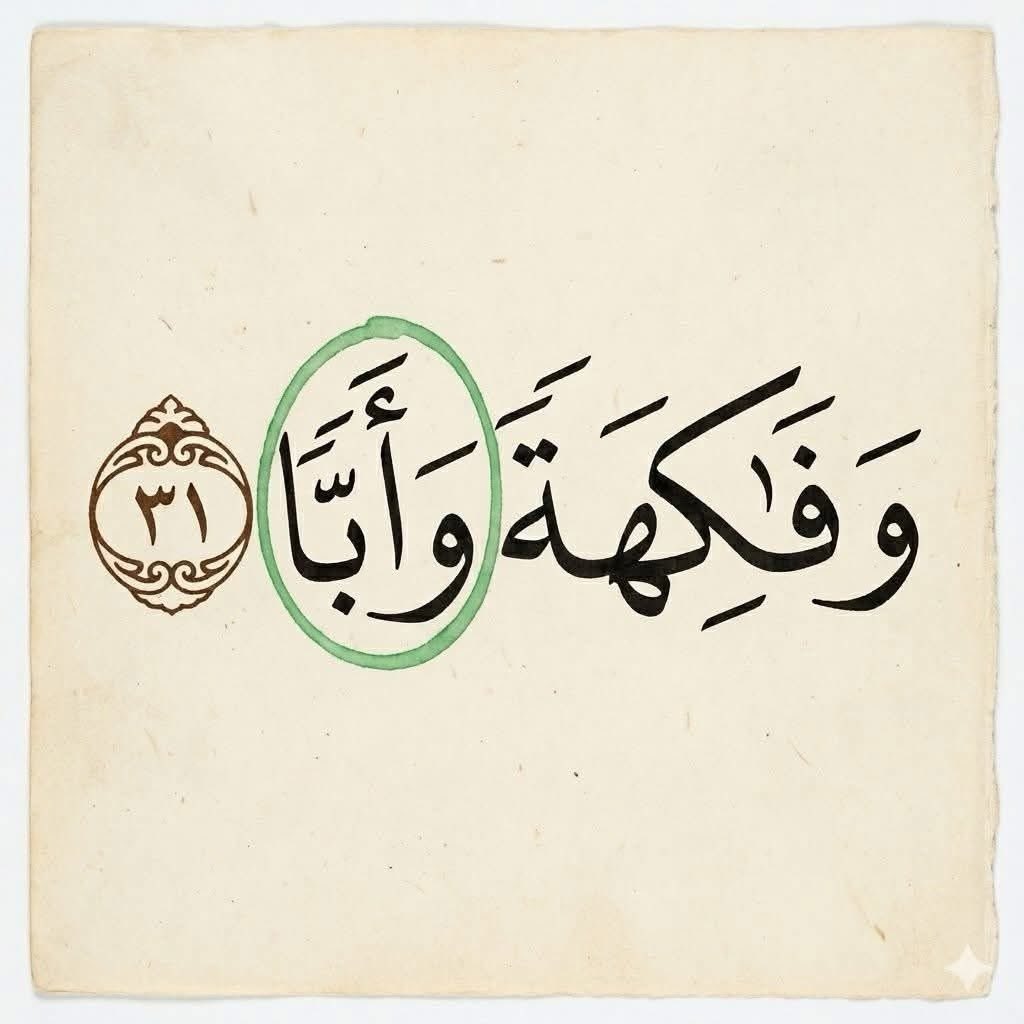 وَفَٰكِهَةً وَأَبًّا ٣١